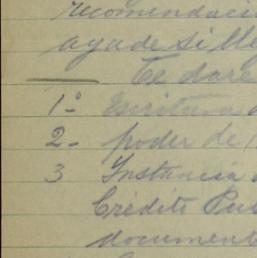 recomendació
ayude si lle
Te daré
1º Escritura d
2- poder de
3 Instancia
Crédito Pu
document